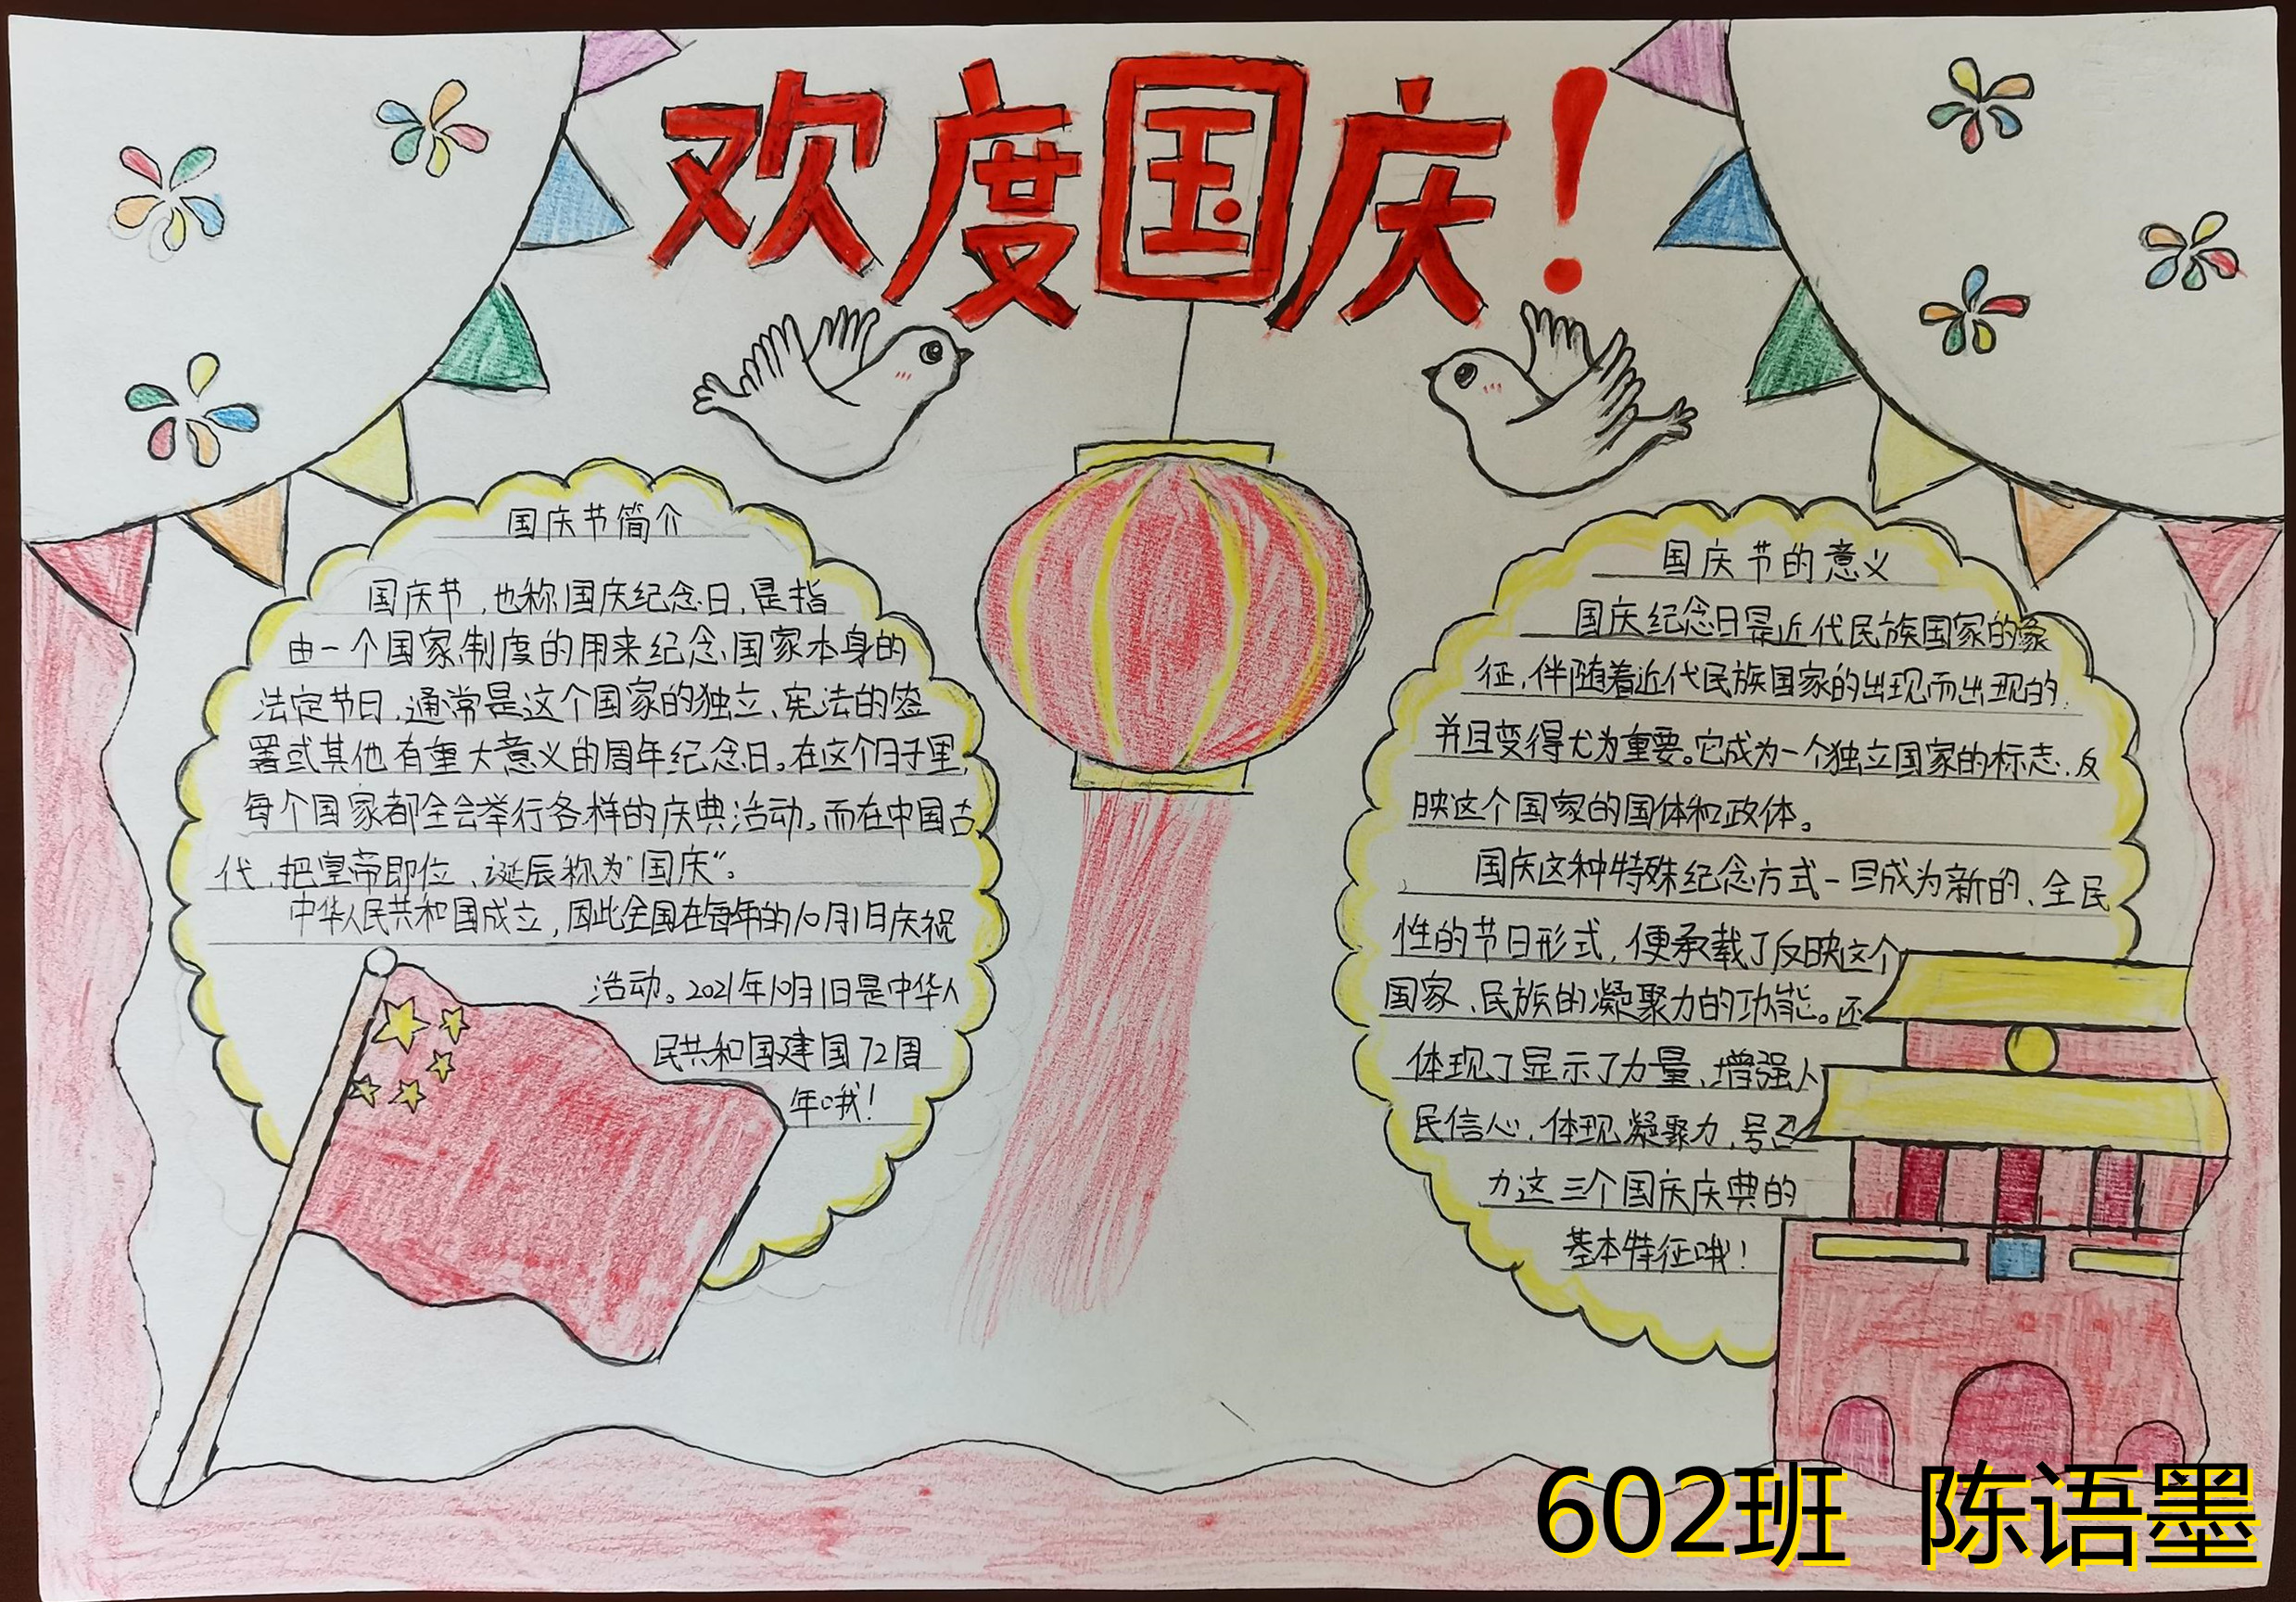 欢度国庆！
国庆节简介
国庆节，也称国庆纪念日，是指
由一个国家制度的用来纪念国家本身的
法定节日，通常是这个国家的独立、宪法的签
署或其他有重大意义的周年纪念日。在这个日子里，
每个国家都全会举行各样的庆典活动。而在中国古
代，把皇帝即位、诞辰称为“国庆”。
中华人民共和国成立，因此全国在每年的10月1日庆祝
活动。2021年10月1日是中华人
民共和国建国72周
年哦！
国庆节的意义
国庆纪念日是近代民族国家的象
征，伴随着近代民族国家的出现而出现的，
并且变得尤为重要。它成为一个独立国家的标志，反
映这个国家的国体和政体。
国庆这种特殊纪念方式一旦成为新的、全民
性的节日形式，便承载了反映这个
国家、民族的凝聚力的功能。还
体现了显示了力量、增强人
民信心，体现凝聚力，号召
力这三个国庆庆典的
基本特征哦！
602班 陈语墨